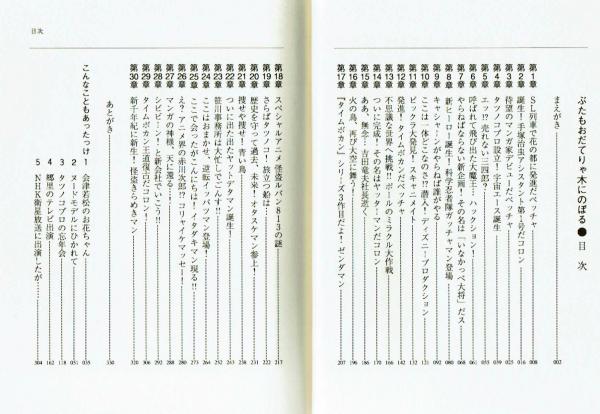 ぶたもおだてりゃ木にのぼる●目次
まえがき 002
第1章 SL列車で花の都に発進だベッチャ 008
第2章 誕生！手塚治虫アシスタント第1号だコロン 016
第3章 待望のマンガ家デビューだベッチャ 025
第4章 タツノコプロ設立！宇宙エース誕生 039
第5章 エッ!? 売れない三四郎？ 055
第6章 呼ばれて飛び出た大魔王！ハクション！ 061
第7章 やらねばならない新企画！その名は「いなかっぺ大将」だス 068
第8章 新ヒーロー誕生！科学忍者隊ガッチャマン登場 080
第9章 キャシャーンがやらねば誰がやる 092
第10章 ここは一体どこなのさ!? 潜入！ディズニープロダクション 109
第11章 ビックラ大発見！スキャニメイト 121
第12章 発進！タイムボカンだベッチャ 132
第13章 不思議な世界へ挑戦!! ポールのミラクル大作戦 142
第14章 ついに完成！その名はヤットデマンだコロン
第15章 ああ、無念！吉田竜夫社長逝く
第16章 火の鳥、再び大空に舞う！ 196
第17章 「タイムボカン」シリーズ3作目だよ！ゼンダマン 207
目次
第18章 スペシャルアニメ怪盗ルパン813の謎 217
第19章 さらばタツノコ！旅立つ船オ 222
第20章 歴史を守って過去、未来！オタスケマン参上！ 231
第21章 捜せや捜せ！青い鳥 238
第22章 ついに出た出たヤットデタマン誕生！
第23章 笹川事務所は大忙しでごんす!!
第24章 ここはおまかせ、逆転イッパツマン登場！
第25章 ここで会ったがこんにちは！イタダキマン現る!!
第26章 え？アニメ界の赤川次郎!? コリャイイケマッセー！
第27章 マンガの神様、天に還る！
第28章 シビビーン！と新会社でいこう!!
第29章 タイムボカン王道復古だコロン！ 306
第30章 新千年紀に新生！怪盗きらめきマン 320
あとがき 330
こんなこともあったっけ
1 会津若松のお花ちゃん 035
2 ヌードモデルにひかれて 051
3 タツノコプロの忘年会 118
4 郷里のテレビ出演 162
5 NHK衛星放送に出演したが… 304